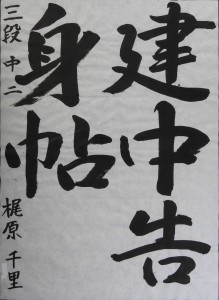 建中告
身帖
三段 中二 梶原 千里